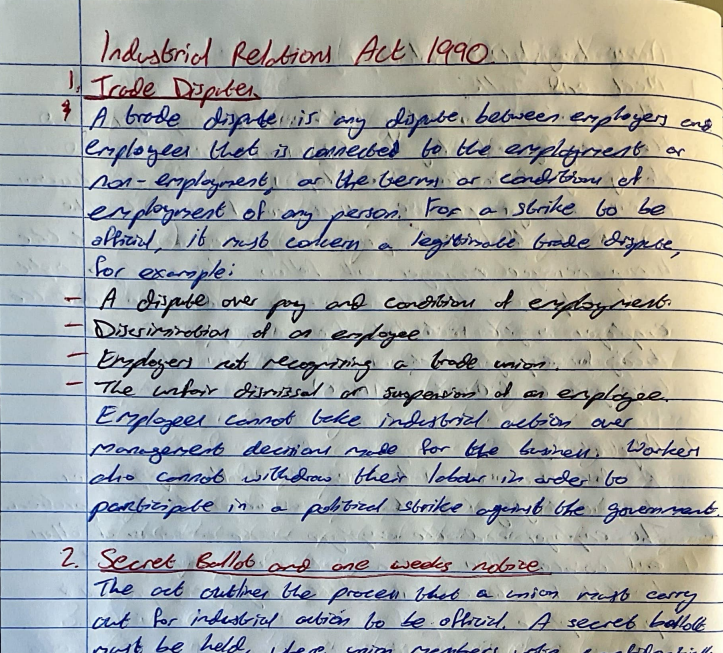 Industrial Relations Act 1990
1. Trade Disputes
* A trade dispute is any dispute between employers and
employees that is connected to the employment or
non-employment, or the terms or condition of
employment of any person. For a strike to be
official, it must concern a legitimate trade dispute,
for example:
- A dispute over pay and condition of employment.
- Discrimination of an employee.
- Employers not recognizing a trade union.
- The unfair dismissal or suspension of an employee.
Employees cannot take industrial action over
management decisions made for the business. Workers
also cannot withdraw their labour in order to
participate in a political strike against the government.
2. Secret Ballot and one weeks notice
The act outlines the process that a union must carry
out for industrial action to be official. A secret ballot
must be held, where union members